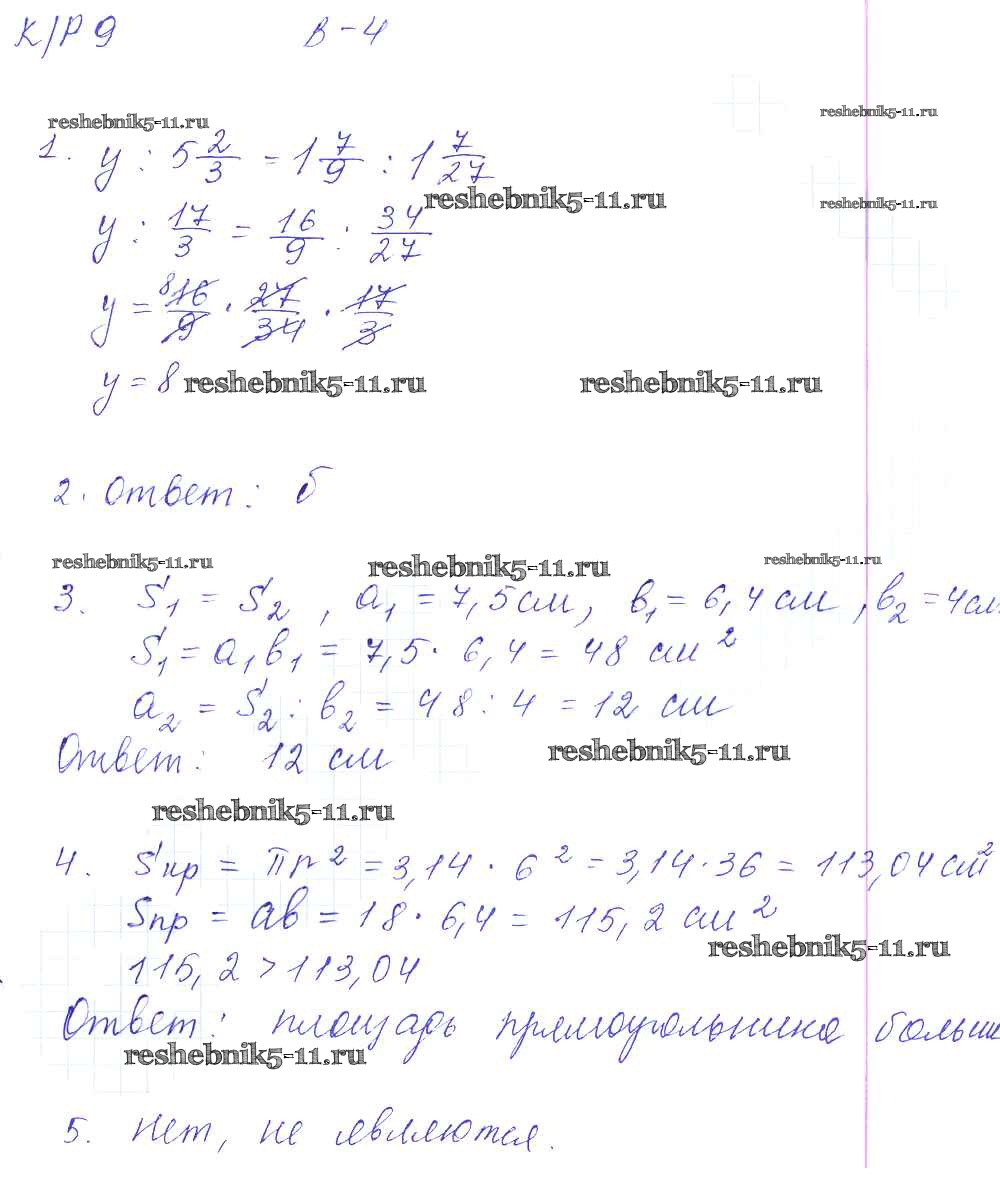 К/Р 9 В-4
reshebnik5-11.ru reshebnik5-11.ru
1. y : 5 2/3 = 1 7/9 : 1 7/27
reshebnik5-11.ru reshebnik5-11.ru
y : 17/3 = 16/9 : 34/27
y = 8 16/9 · 27/34 · 17/3
y = 8 reshebnik5-11.ru reshebnik5-11.ru
2. Ответ: б
reshebnik5-11.ru reshebnik5-11.ru reshebnik5-11.ru
3. S₁ = S₂, a₁ = 7,5 см, в₁ = 6,4 см, в₂ = 4см
S₁ = a₁в₁ = 7,5 · 6,4 = 48 см²
a₂ = S₂ : в₂ = 48 : 4 = 12 см
Ответ: 12 см reshebnik5-11.ru
reshebnik5-11.ru
4. Sкр = πr² = 3,14 · 6² = 3,14 · 36 = 113,04 см²
Sпр = ав = 18 · 6,4 = 115,2 см²
reshebnik5-11.ru
115,2 > 113,04
Ответ: площадь прямоугольника больше
reshebnik5-11.ru
5. Нет, не являются.